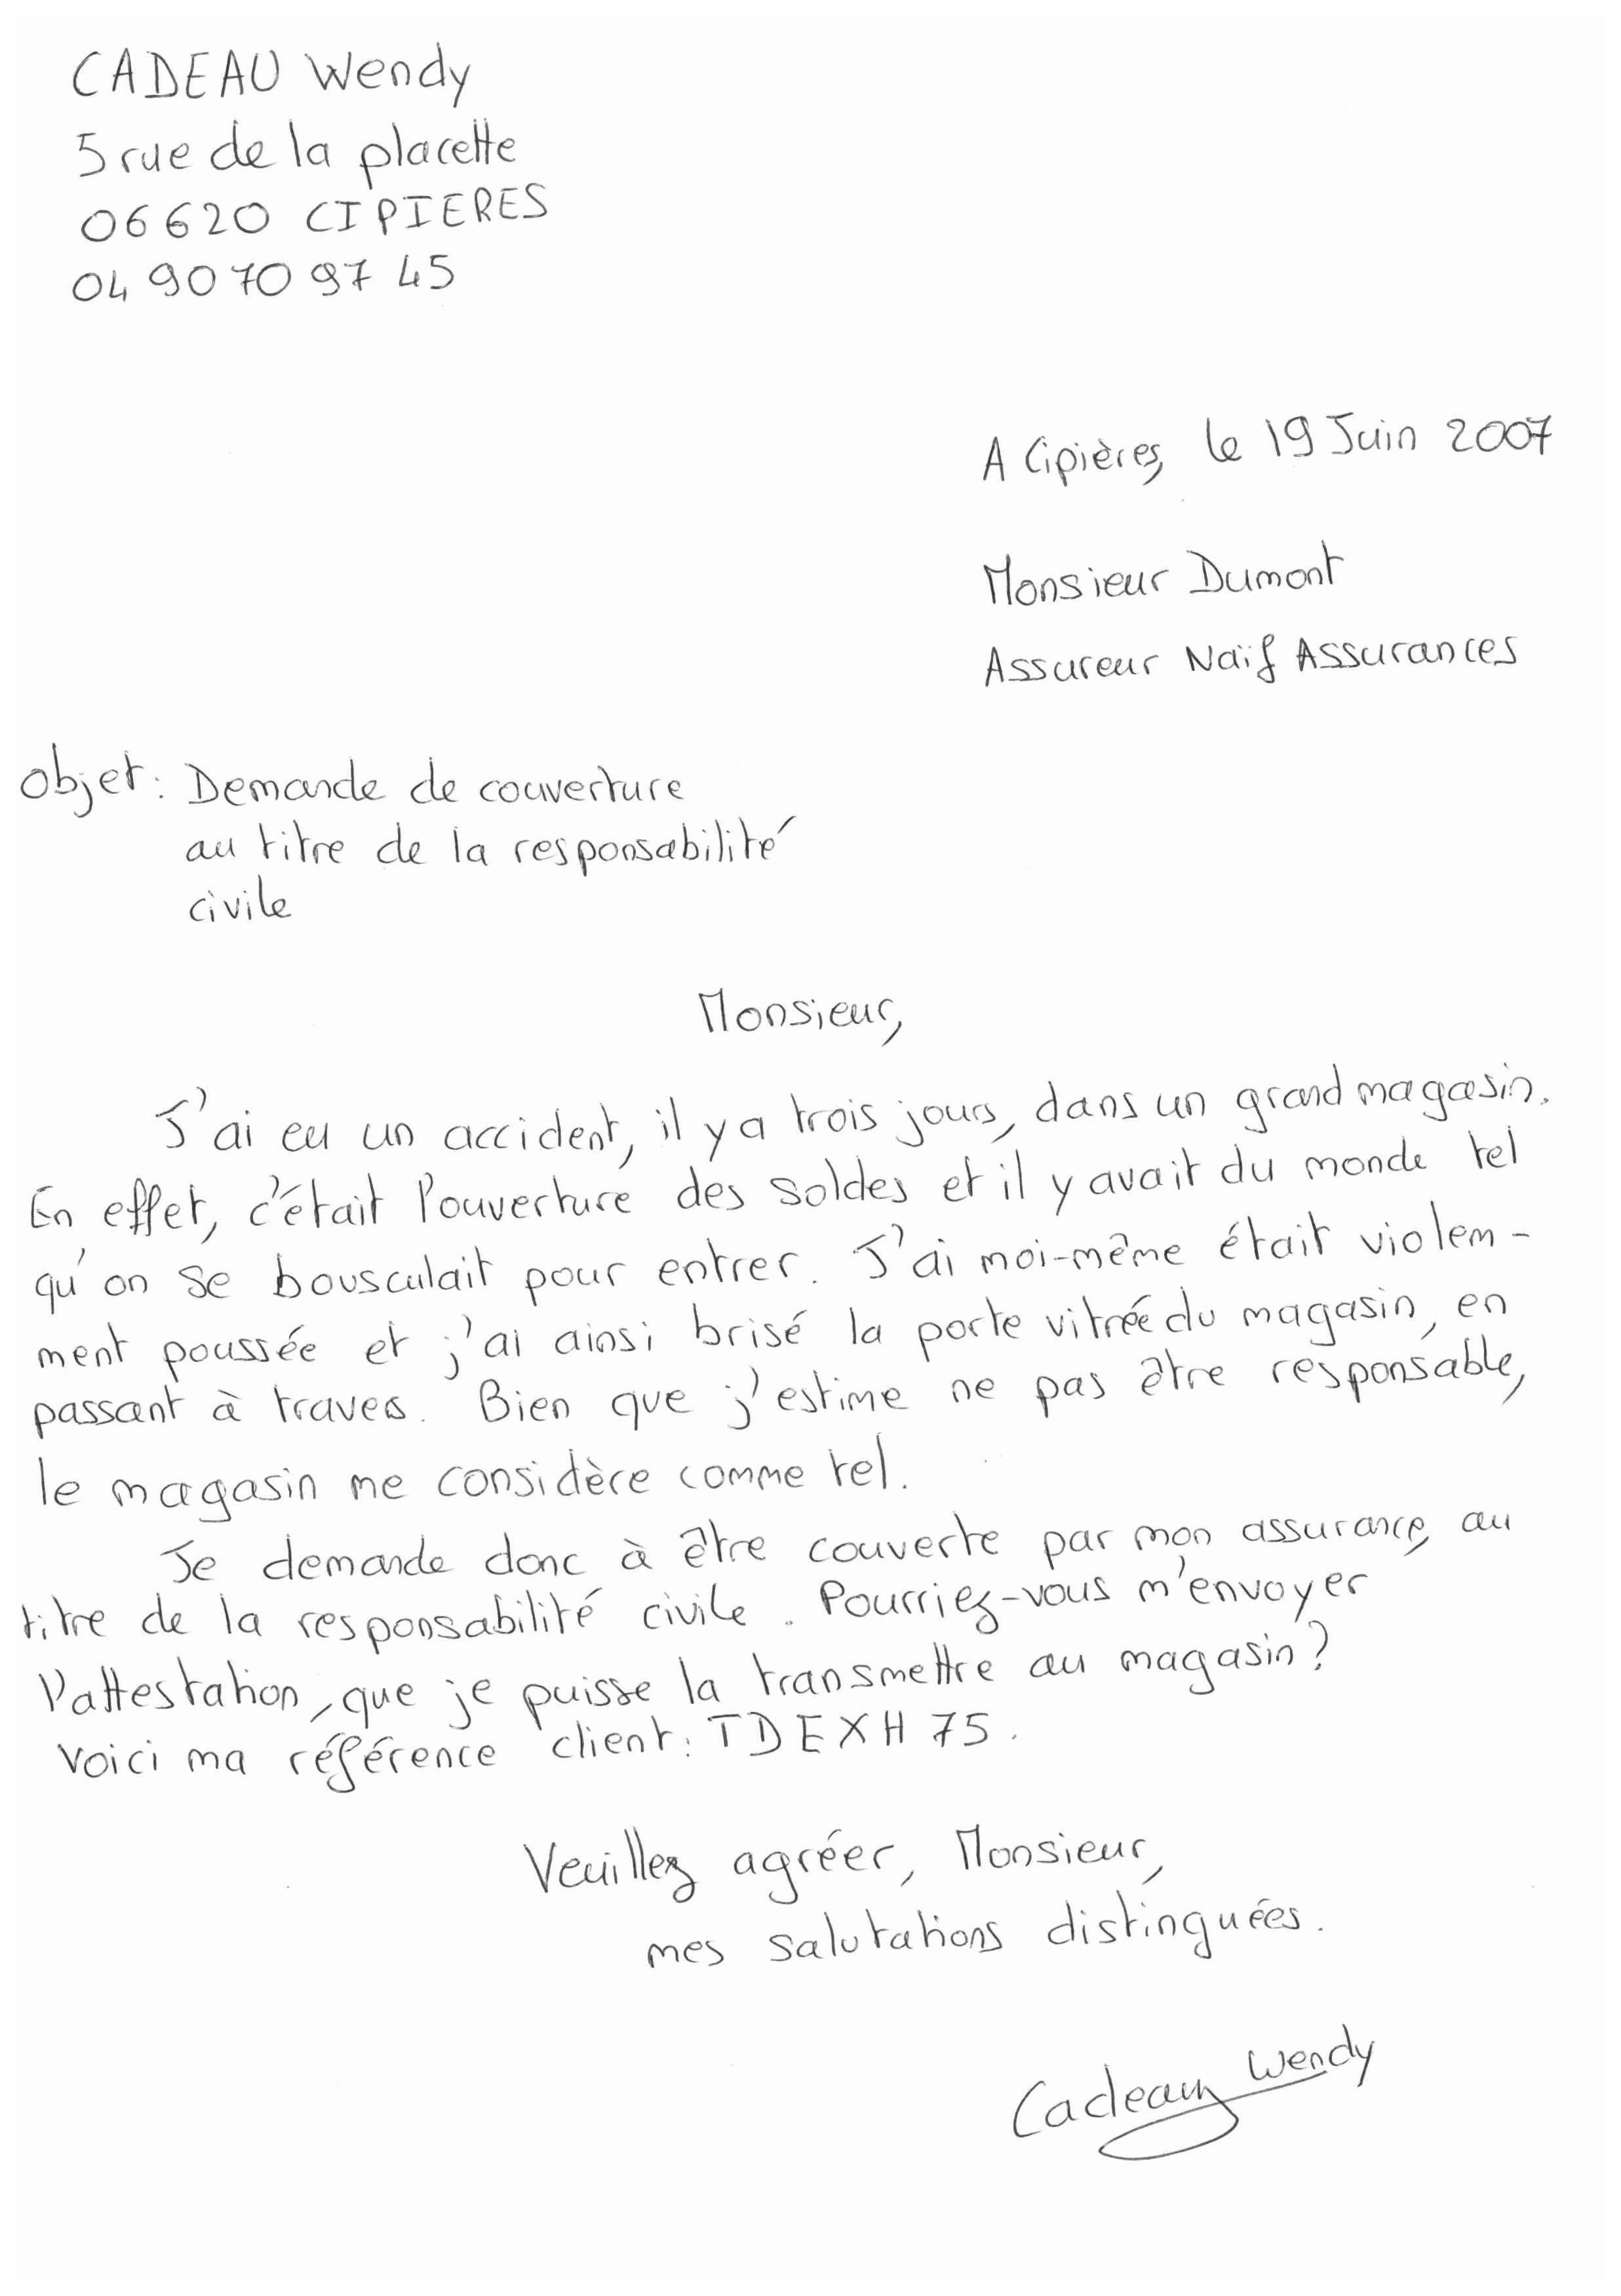 CADEAU Wendy
5 rue de la placette
06620 CIPIERES
04 90 70 97 45
A Cipières, le 19 Juin 2007
Monsieur Dumont
Assureur Naïf Assurances
Objet : Demande de couverture
au titre de la responsabilité
civile
Monsieur,
J'ai eu un accident, il y a trois jours, dans un grand magasin.
En effet, c'était l'ouverture des soldes et il y avait du monde tel
qu'on se bousculait pour entrer. J'ai moi-même était violem-
ment poussée et j'ai ainsi brisé la porte vitrée du magasin, en
passant à travers. Bien que j'estime ne pas être responsable,
le magasin me considère comme tel.
Je demande donc à être couverte par mon assurance, au
titre de la responsabilité civile. Pourriez-vous m'envoyer
l'attestation, que je puisse la transmettre au magasin ?
Voici ma référence client : TDEXH 75.
Veuillez agréer, Monsieur,
mes salutations distinguées.
Cadeau Wendy